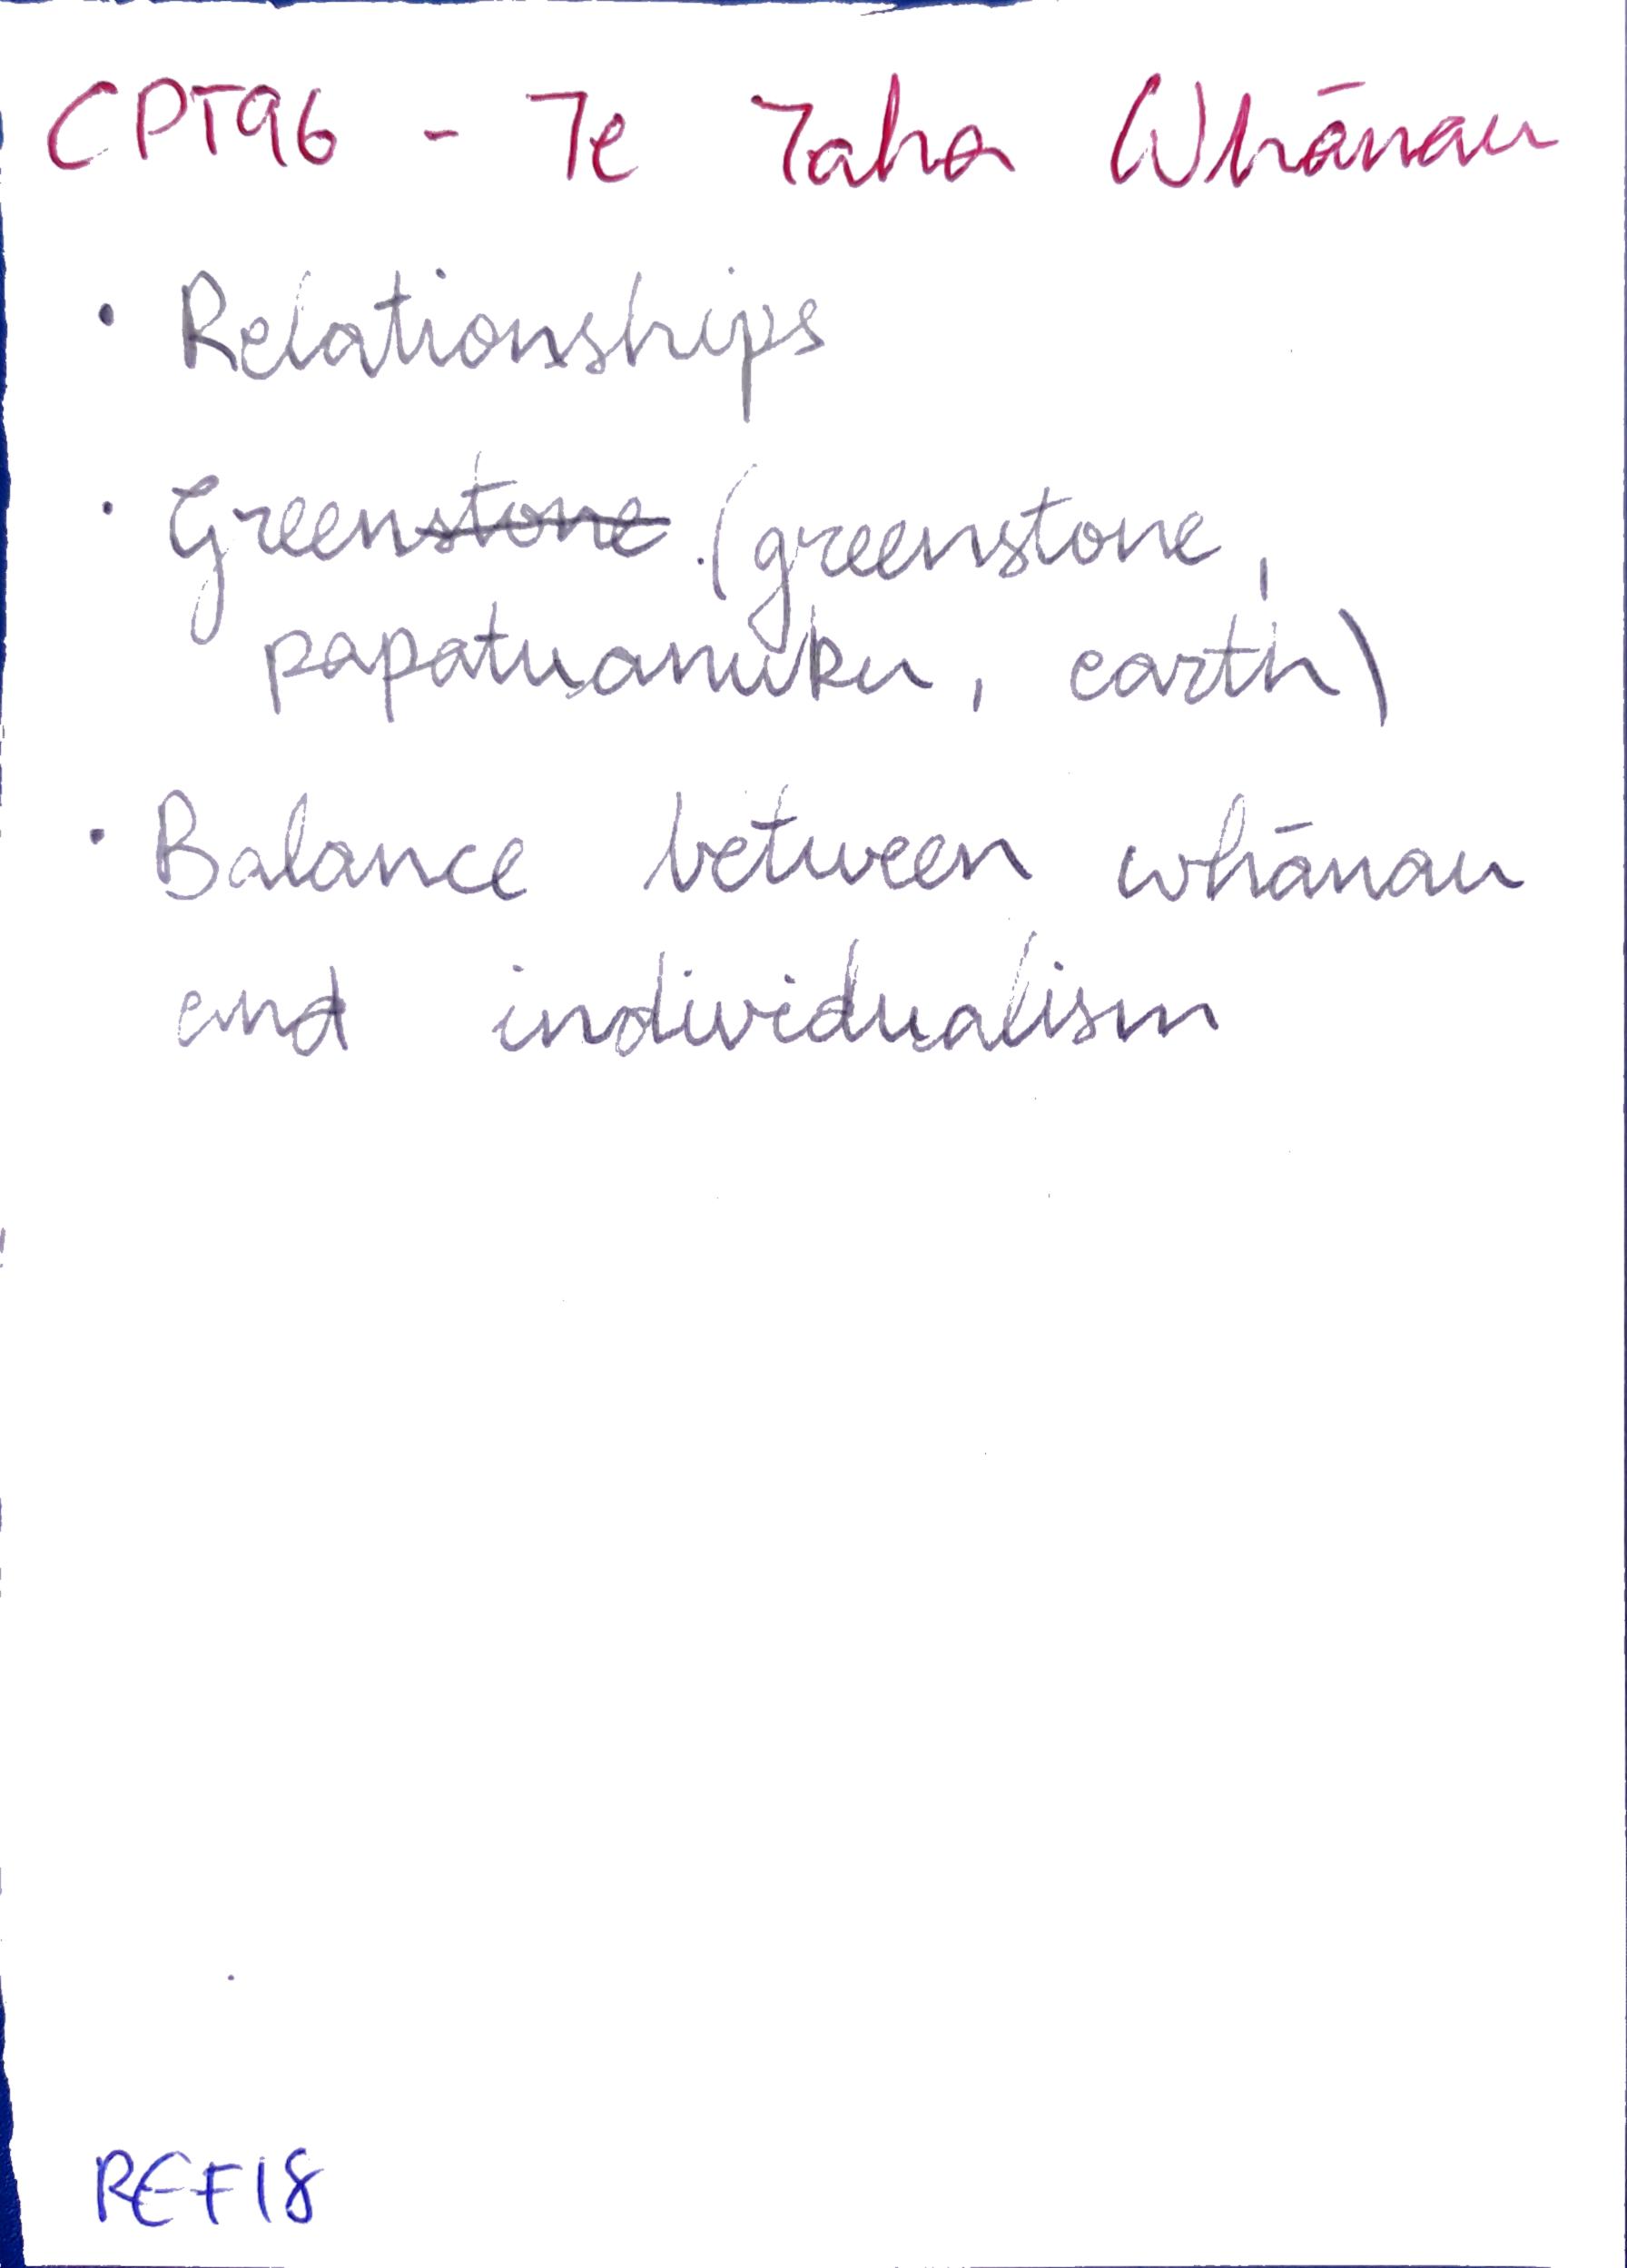 CPT96 - Te Taha Whānau
· Relationships
· Greenstone (greenstone,
papatuanuku, earth)
· Balance between whānau
and individualism
REF18